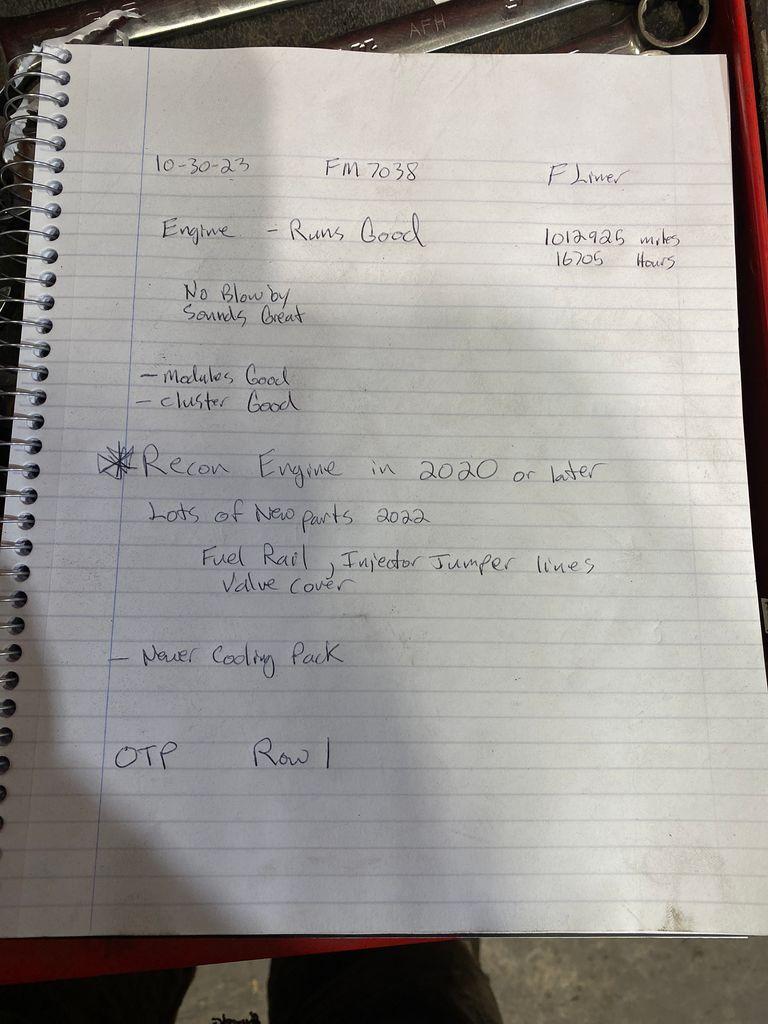 AFH
10-30-23 FM7038 F Liner
Engine - Runs Good
1012925 miles
16705 Hours
No Blow by
Sounds Great
- Modules Good
- Cluster Good
* Recon Engine in 2020 or later
Lots of New parts 2022
Fuel Rail, Injector Jumper lines
Valve Cover
- Newer Cooling Pack
OTP Row 1